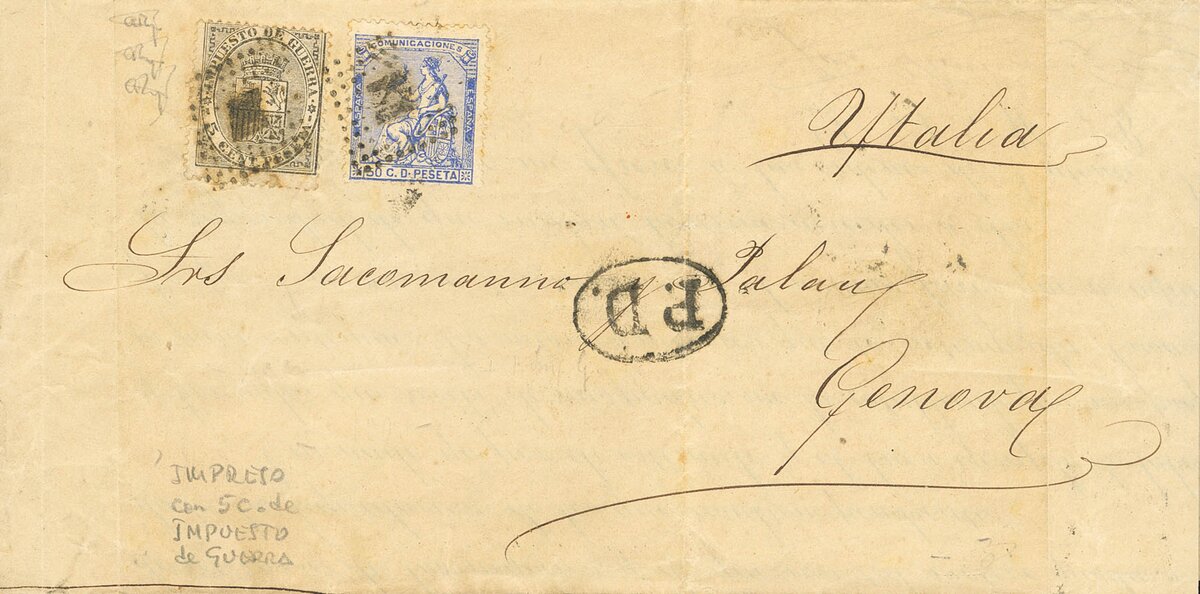 IMPUESTO DE GUERRA
5 CENT. PESETA
COMUNICACIONES
ESPAÑA
ESPAÑA
50 C. D. PESETA
Ytalia
Srs Sacomanno y Palau
P.D.
Genova
IMPRESO
con 5c. de
IMPUESTO
de GUERRA